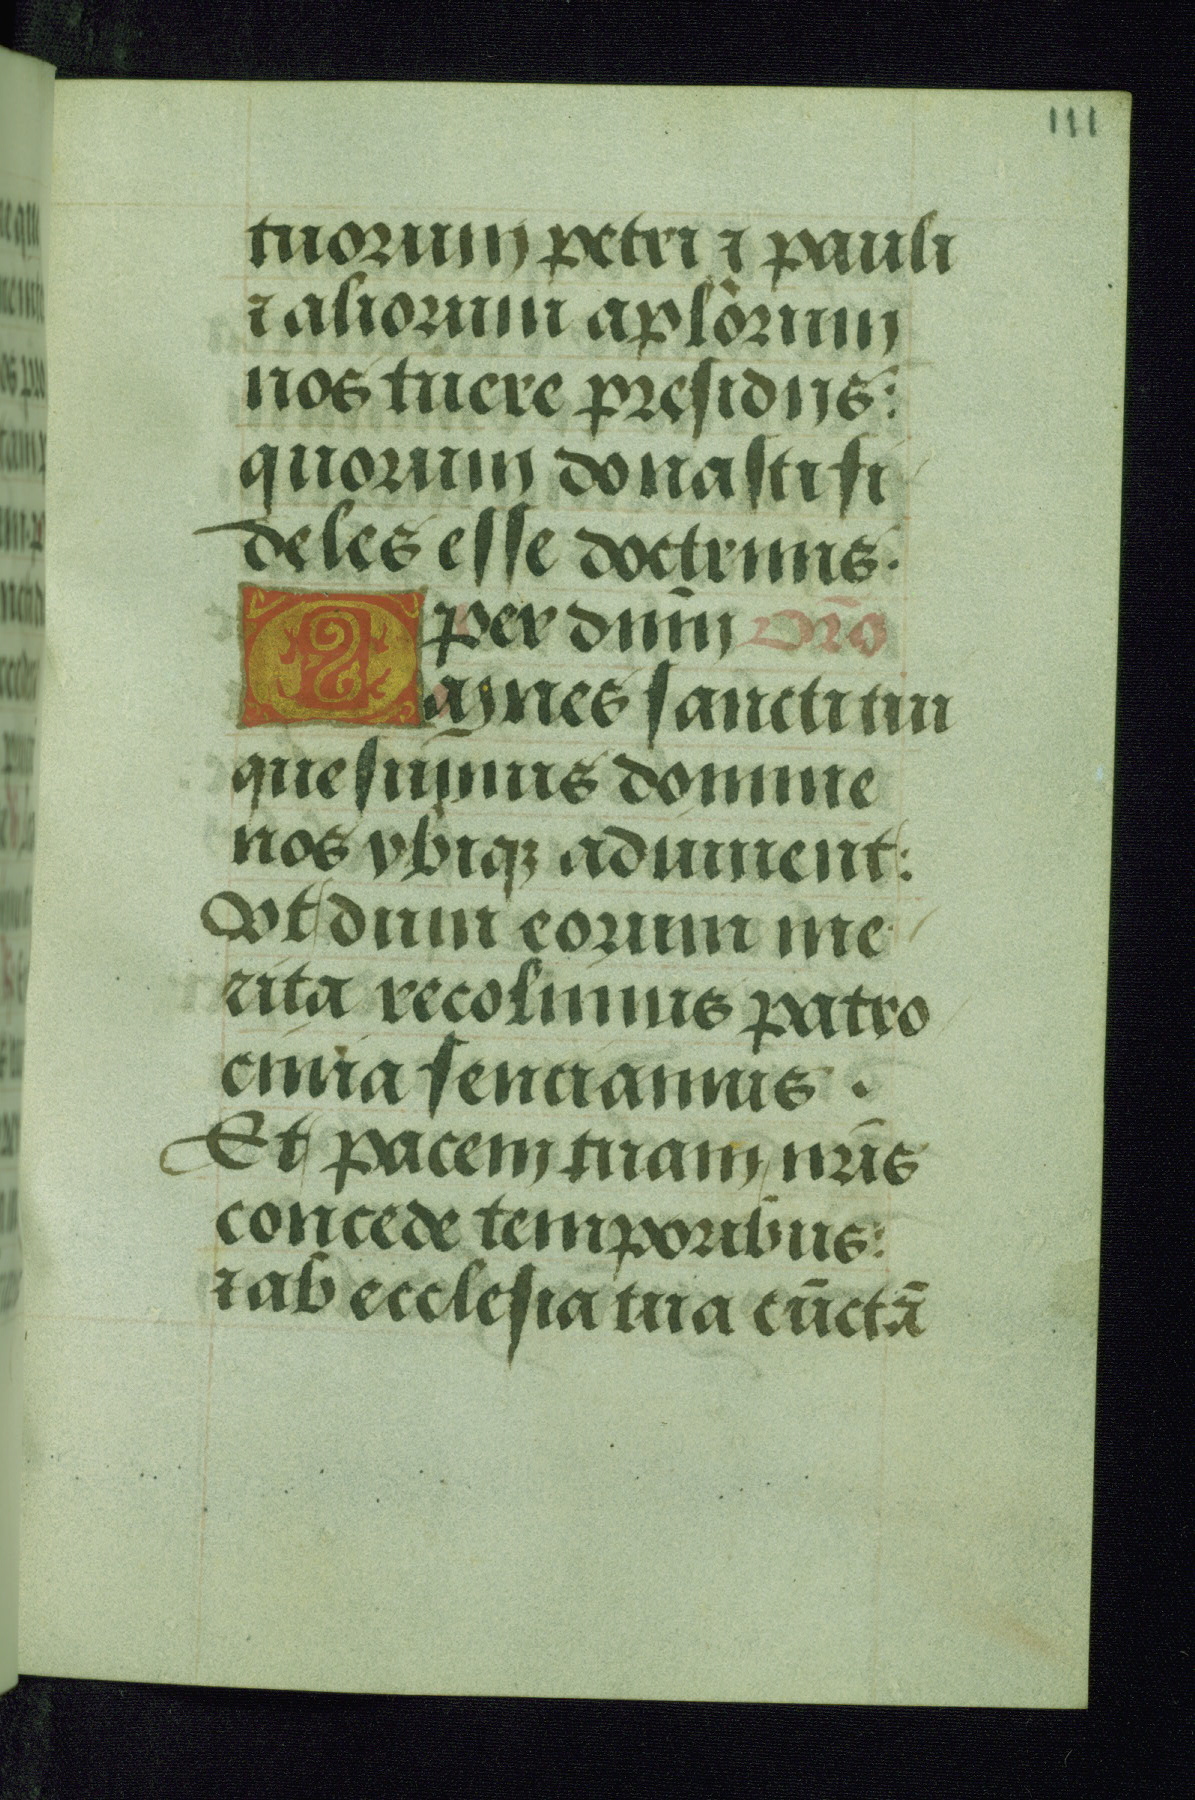 111
tuorum petri ⁊ pauli
⁊ aliorum aplõrum
nos tuere presidijs:
quorum donasti fi
deles esse doctrinis.
per dnm̃ Orõ
Omnes sancti tui
quesumus domine
nos vbiqꝫ adiuuent:
Vt dum eorum me
rita recolimus patro
cinia senciamus.
Et pacem tuam nrĩs
concede temporibus:
⁊ ab ecclesia tua cũctã